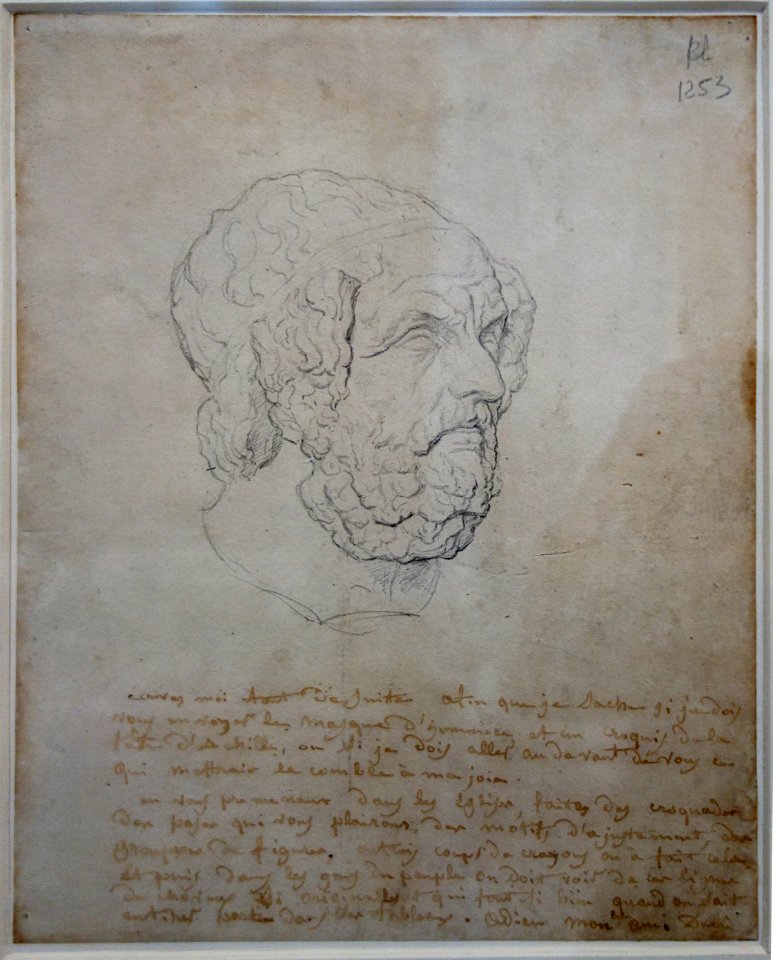 Bl
1253
écrivez moi tout de suitte afin que je sache si je dois
vous envoyer le masque d'hommère et un croquis de la
tête d'Achille, ou si je dois aller au devant de vous ce
qui mettrait le comble à ma joie.
en vous promenant dans les Eglises, faites des croquades
des poses qui vous plairont, des motifs d'ajustement, des
grouppes de figures. en trois coups de crayons on a fait cela
et puis dans les gens du peuple on doit voir de
de si originalles et qui font si bien quand on sait
en tirer partie dans des tableaux. adieu mon ami